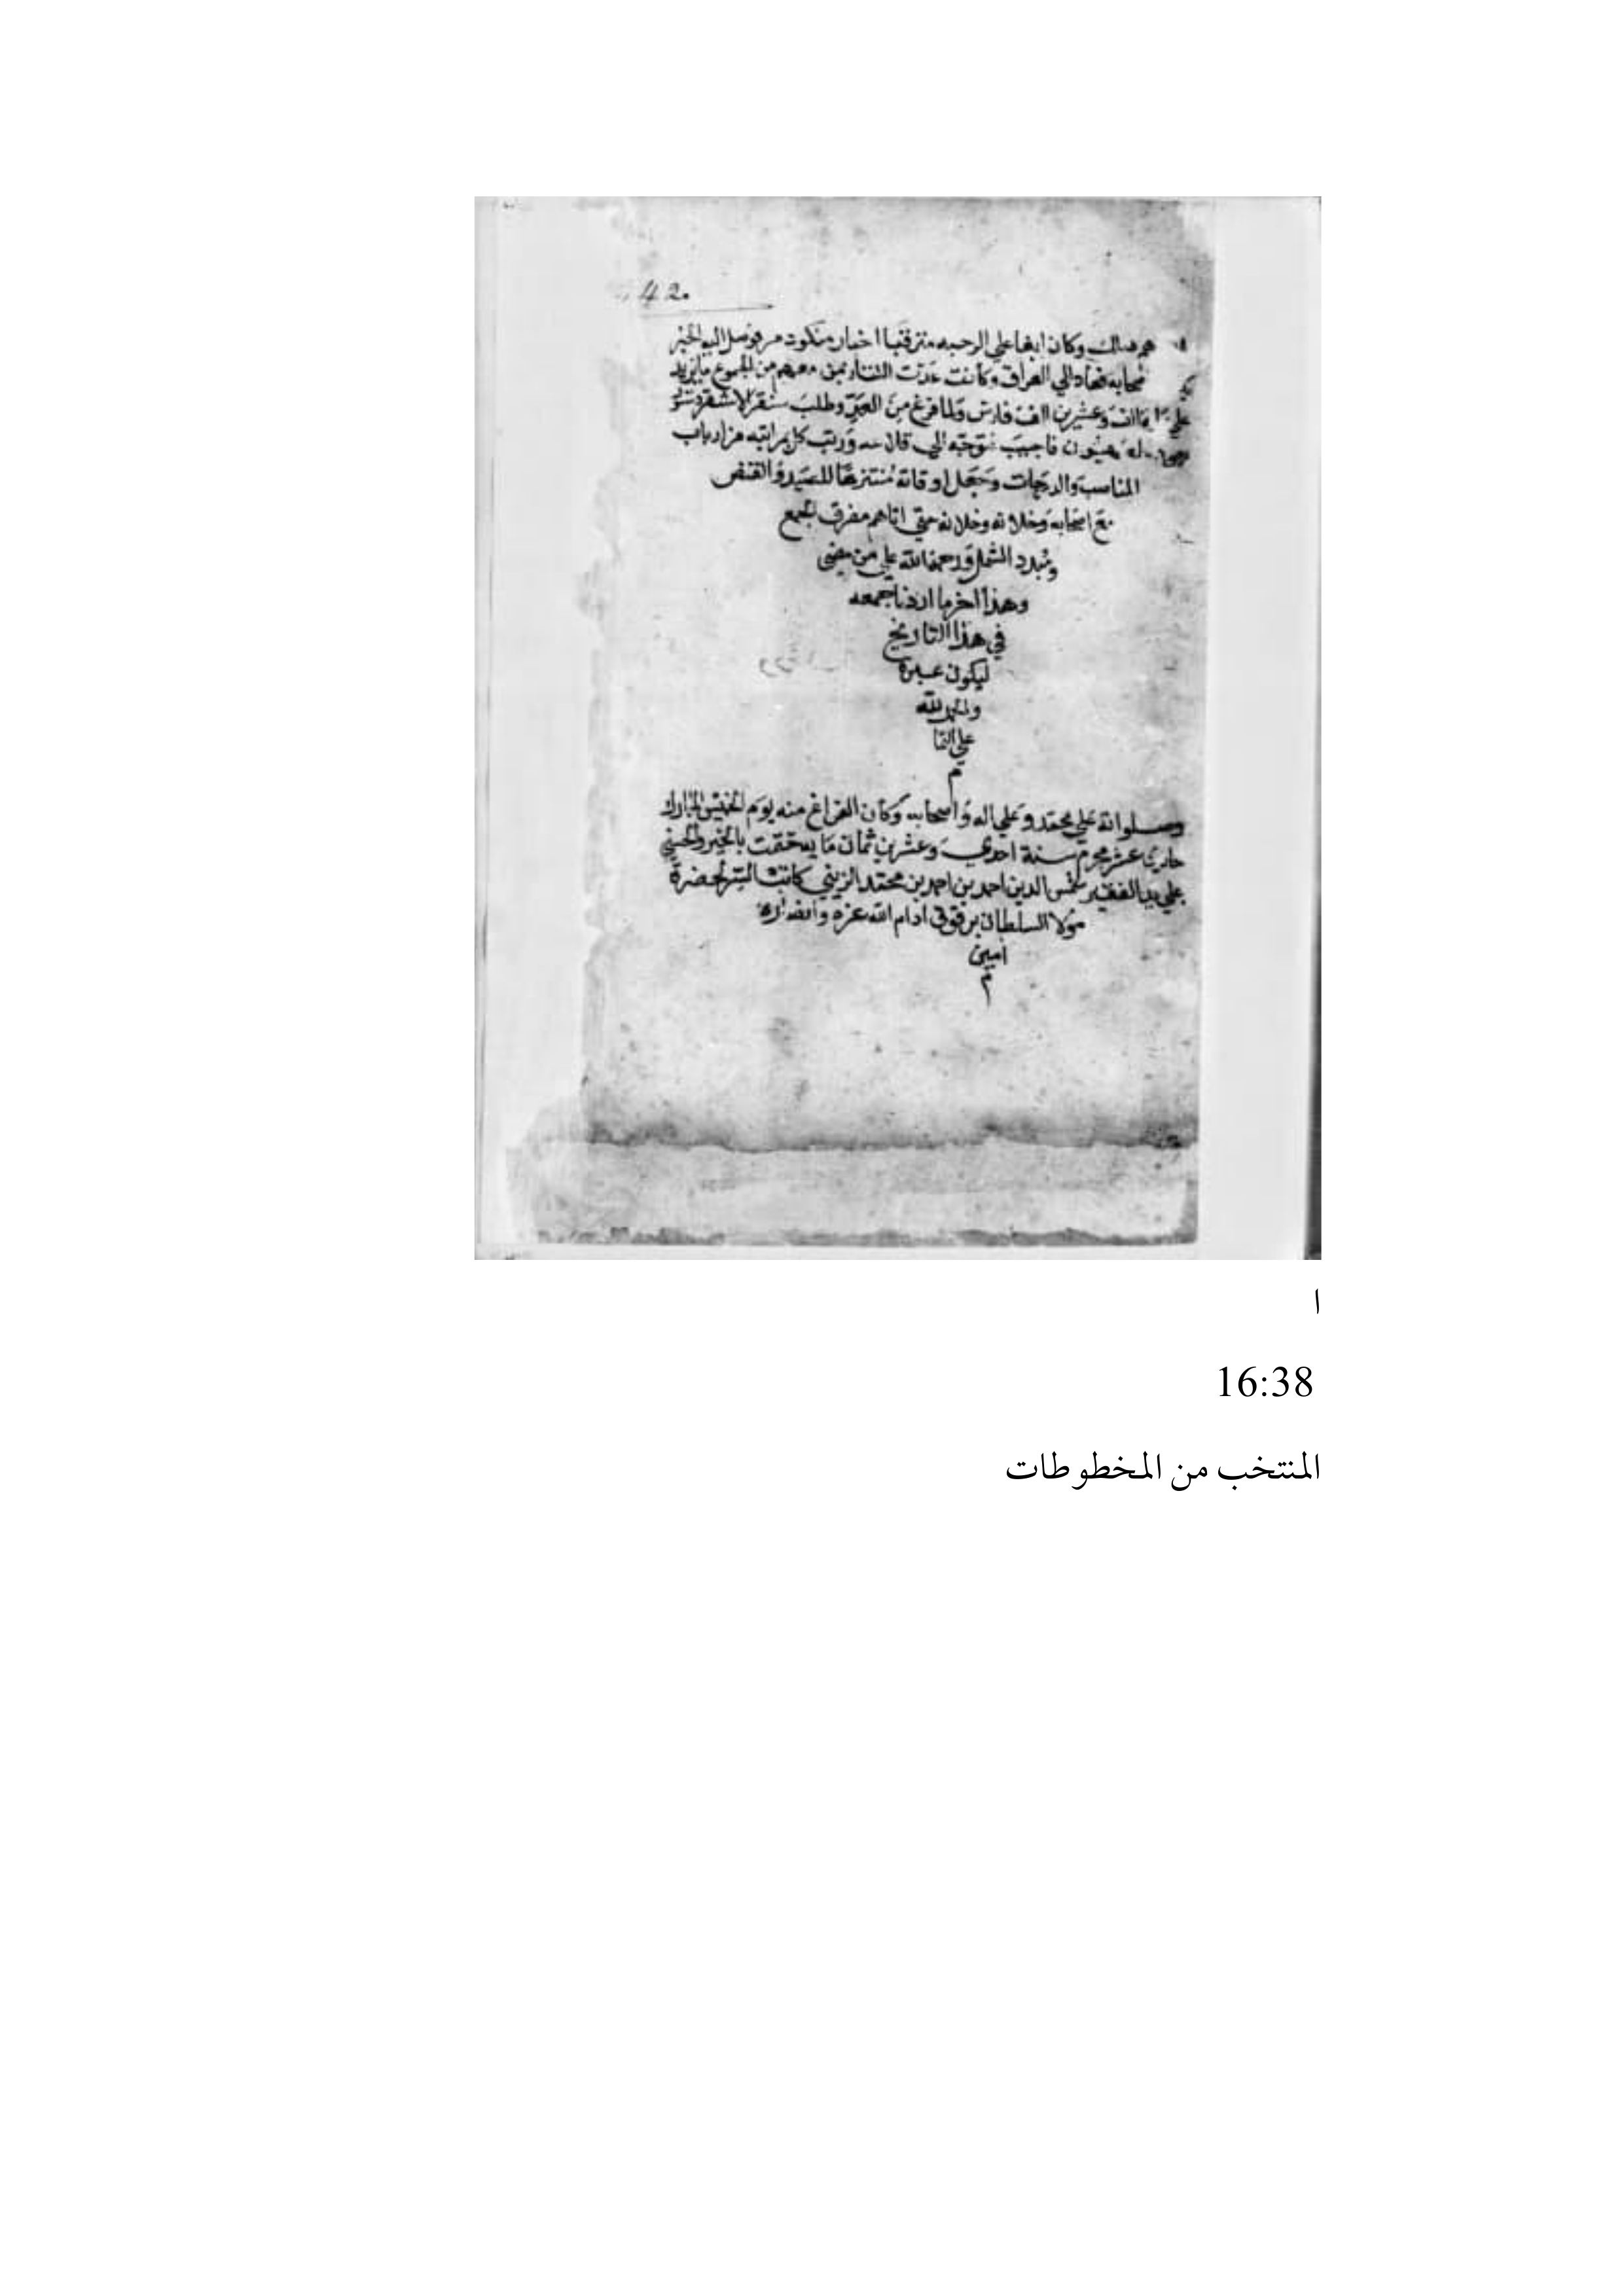 420
هم هناك وكان ابغا علي الرحبه مترقبا اخبار منكوتمر فوصل اليه الخبر
فعاد الي العراق وكانت عدت التتار بمن معهم من الجموع ما يزيد
علي ماية الف وعشرين الف فارس ولما فرغ من العدو طلب سنقر الاشقر دستور
فاجيب فتوجه الي قلاعه ورتب كل مراتبه من ارباب
المناسب والدرجات وجعل اوقاته منتزها للصيد والقنص
مع اصحابه وخلانه وخلانه حتي اتاهم مفرق الجمع
ومبدد الشمل ورحمة الله علي من مضي
وهذا اخر ما اردنا جمعه
في هذا التاريخ
ليكون عبرة
والحمد لله
علي التما
م
وصلواته علي محمد وعلي اله واصحابه وكان الفراغ منه يوم الخميس المبارك
حادي عشر محرم سنة احدي وعشرين ثمان مايه ختمت بالخير والحسني
علي يد الفقير شمس الدين احمد بن احمد بن محمد الزيني كاتب السر لحضرة
مولا السلطان برقوق ادام الله عزه وانصاره
امين
م
ا
16:38
المنتخب من المخطوطات